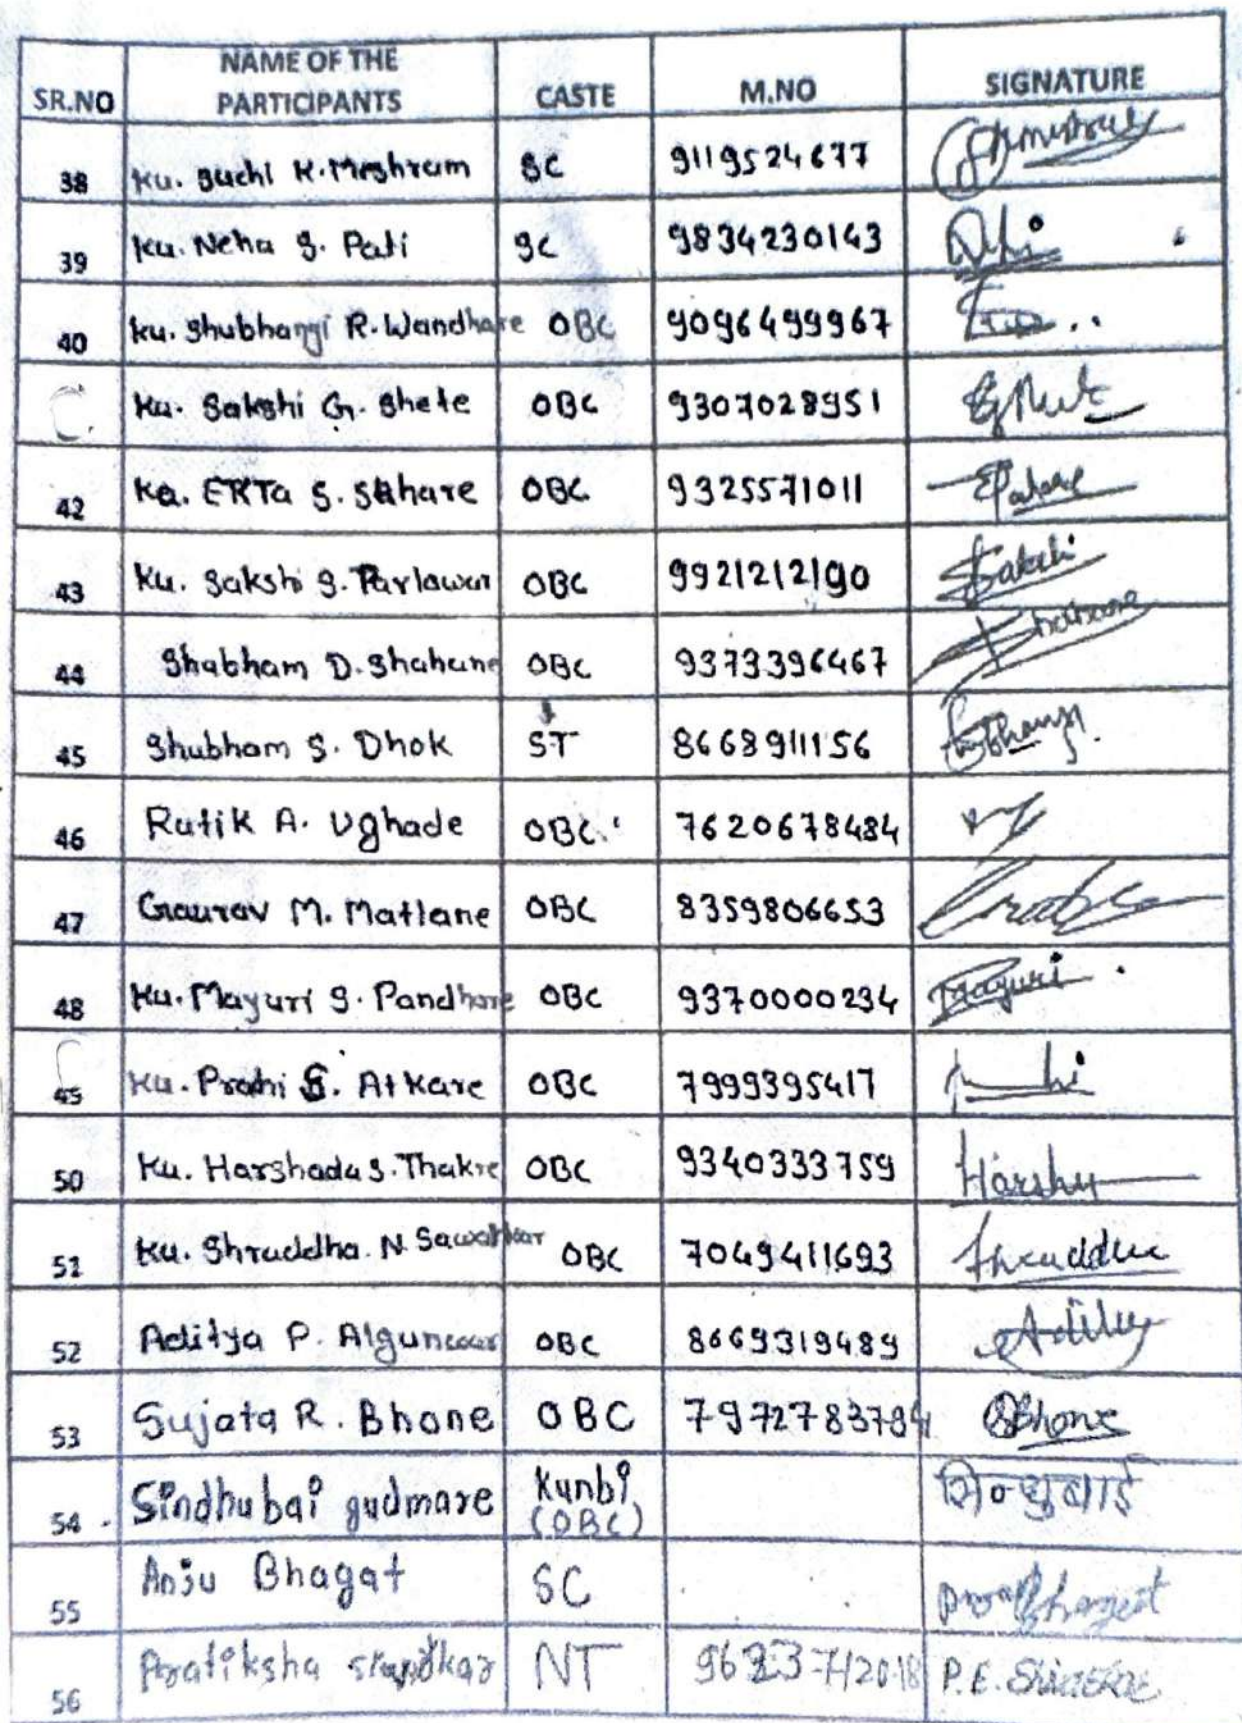 SR.NO NAME OF THE PARTICIPANTS CASTE M.NO SIGNATURE
38 Ku. Suchi K. Meshram SC 9119524677
39 Ku. Neha S. Pati SC 9834230143
40 Ku. Shubhangi R. Wandhare OBC 9096499967
Ku. Sakshi G. Shete OBC 9307028951
42 Ku. EKTa S. Sahare OBC 9325571011
43 Ku. Sakshi S. Parlawar OBC 9921212190 Sakshi
44 Shubham D. Shahane OBC 9373396467 Shahane
45 Shubham S. Dhok ST 8668911156
46 Rutik A. Ughade OBC 7620678484
47 Gaurav M. Matlane OBC 8359806653
48 Ku. Mayuri S. Pandhare OBC 9370000234 Mayuri
49 Ku. Prahi S. Atkare OBC 7999395417
50 Ku. Harshada S. Thakre OBC 9340333759 Harshu
51 Ku. Shraddha N. Sawarkar OBC 7049411693 Shraddha
52 Aditya P. Algunwar OBC 8669319489 Aditya
53 Sujata R. Bhone OBC 7972783784 SBhone
54 Sindhubai gudmare Kunbi (OBC) सिन्धुबाई
55 Anju Bhagat SC Bhagat
56 Pratiksha NT P.E.